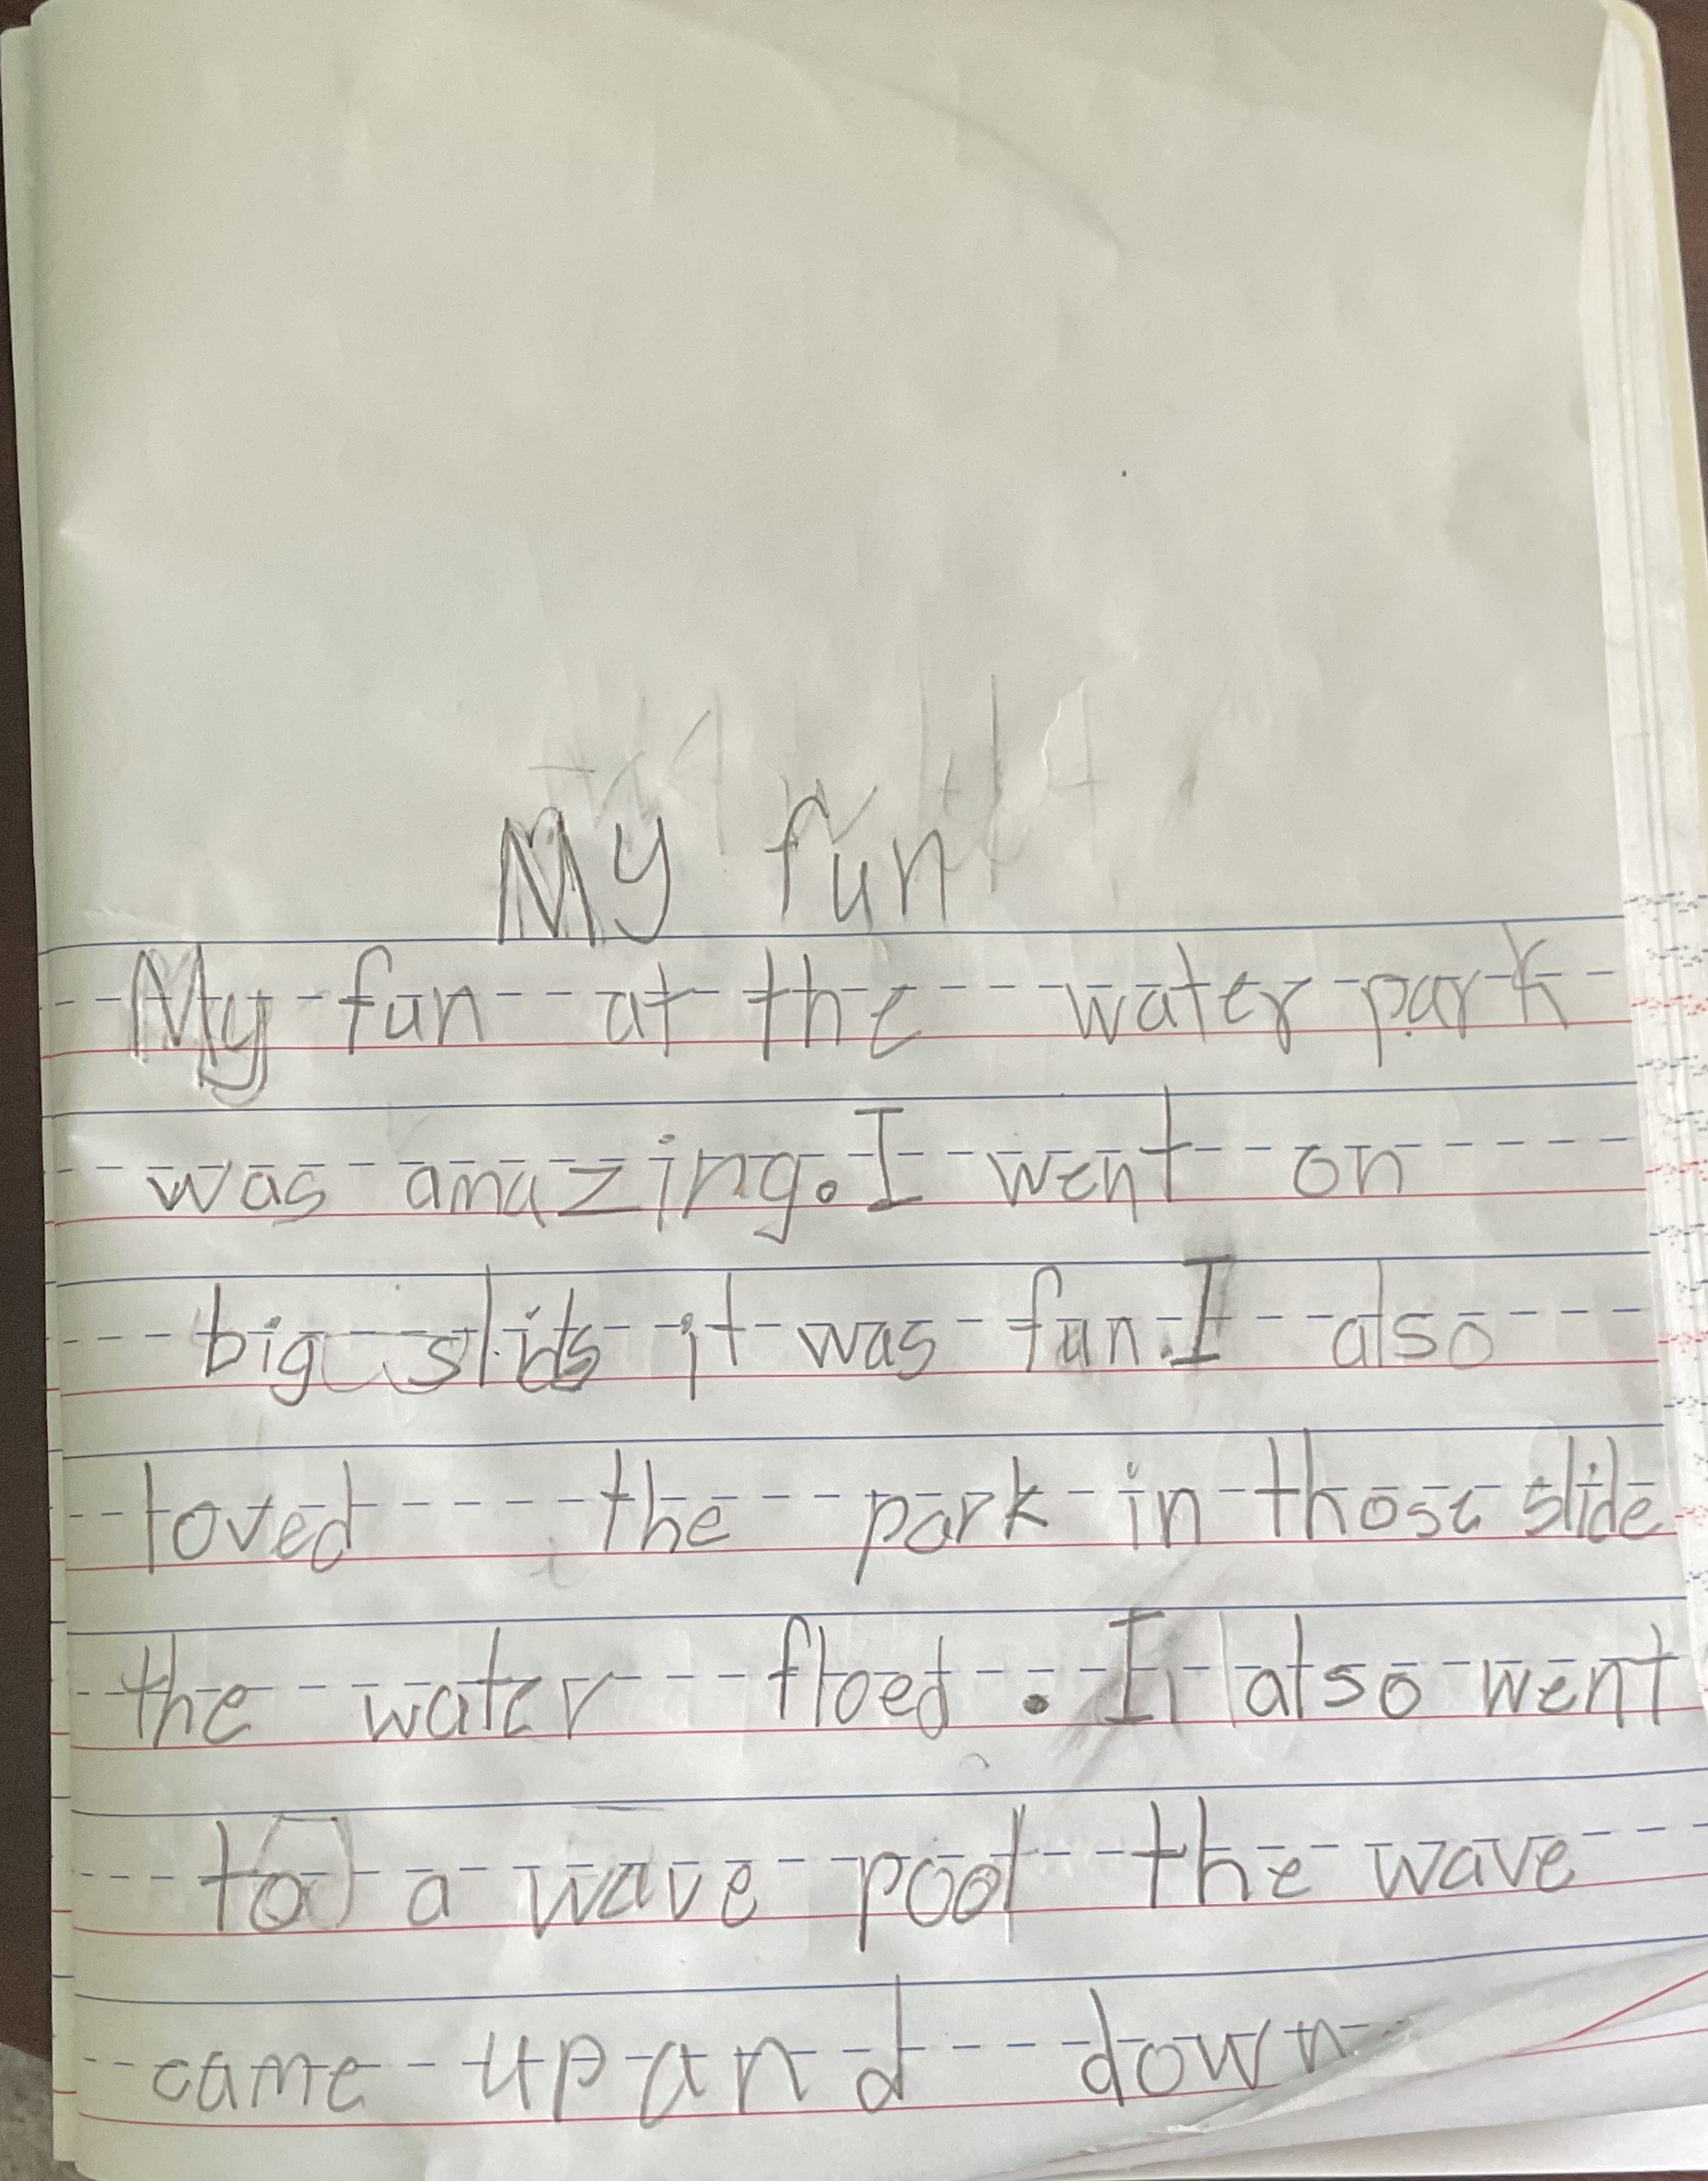 My fun
My fun at the water park
was amazing. I went on
big slids it was fun. I also
loved the park in those slide
the water floed. I also went
to a wave pool the wave
came up and down